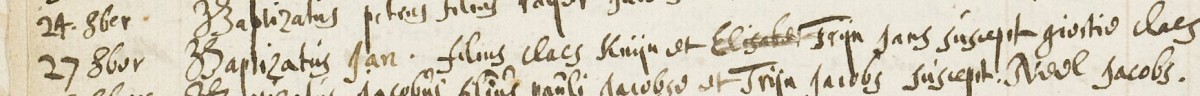 24. 8ber Baptizatus petrus filius
27 8ber Baptizatus Jan. filius Claes Kuijn et Trijn Jans suscepit giertie Claes
Jacobus filius pauli Jacobse et Trijn Jacobs suscepit. Neel Jacobs.